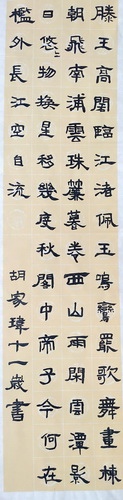 滕王高閣臨江渚佩玉鳴鸞罷歌舞畫棟
朝飛南浦雲珠簾暮卷西山雨閑雲潭影
日悠〻物換星移幾度秋閣中帝子今何在
檻外長江空自流
胡家瑋十一歲書